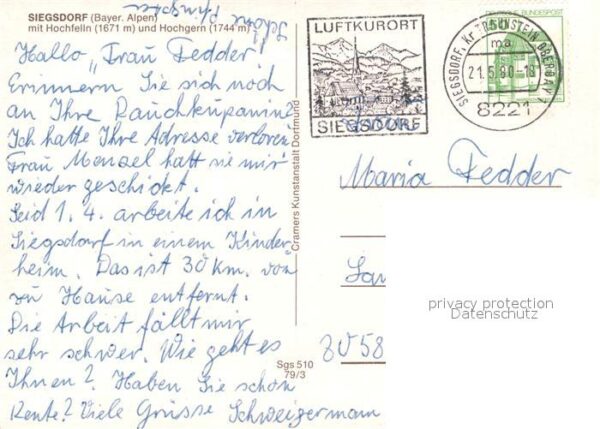 SIEGSDORF (Bayer. Alpen)
mit Hochfelln (1671 m) und Hochgern (1744 m)
Schöne Pfingsten
Hallo „Frau Fedder!
Erinnern Sie sich noch
an Ihre
Ich hatte Ihre Adresse verloren
Frau Mensel hatt sie mir
wieder geschickt.
Seid 1. 4. arbeite ich in
Siegsdorf in einem Kinder
heim. Das ist 30 Km. von
zu Hause entfernt.
Die Arbeit fällt mir
sehr schwer. Wie geht es
Ihnen? Haben Sie schon
Rente? Viele Grüsse Schweigermann
Cramers Kunstanstalt Dortmund
Sgs 510
79/3
LUFTKURORT
SIEGSDORF
SIEGSDORF, Kr TRAUNSTEIN, OBERBAY
ma
21.5.80-18
8221
DEUTSCHE BUNDESPOST
50
Maria Fedder
privacy protection
Datenschutz
58